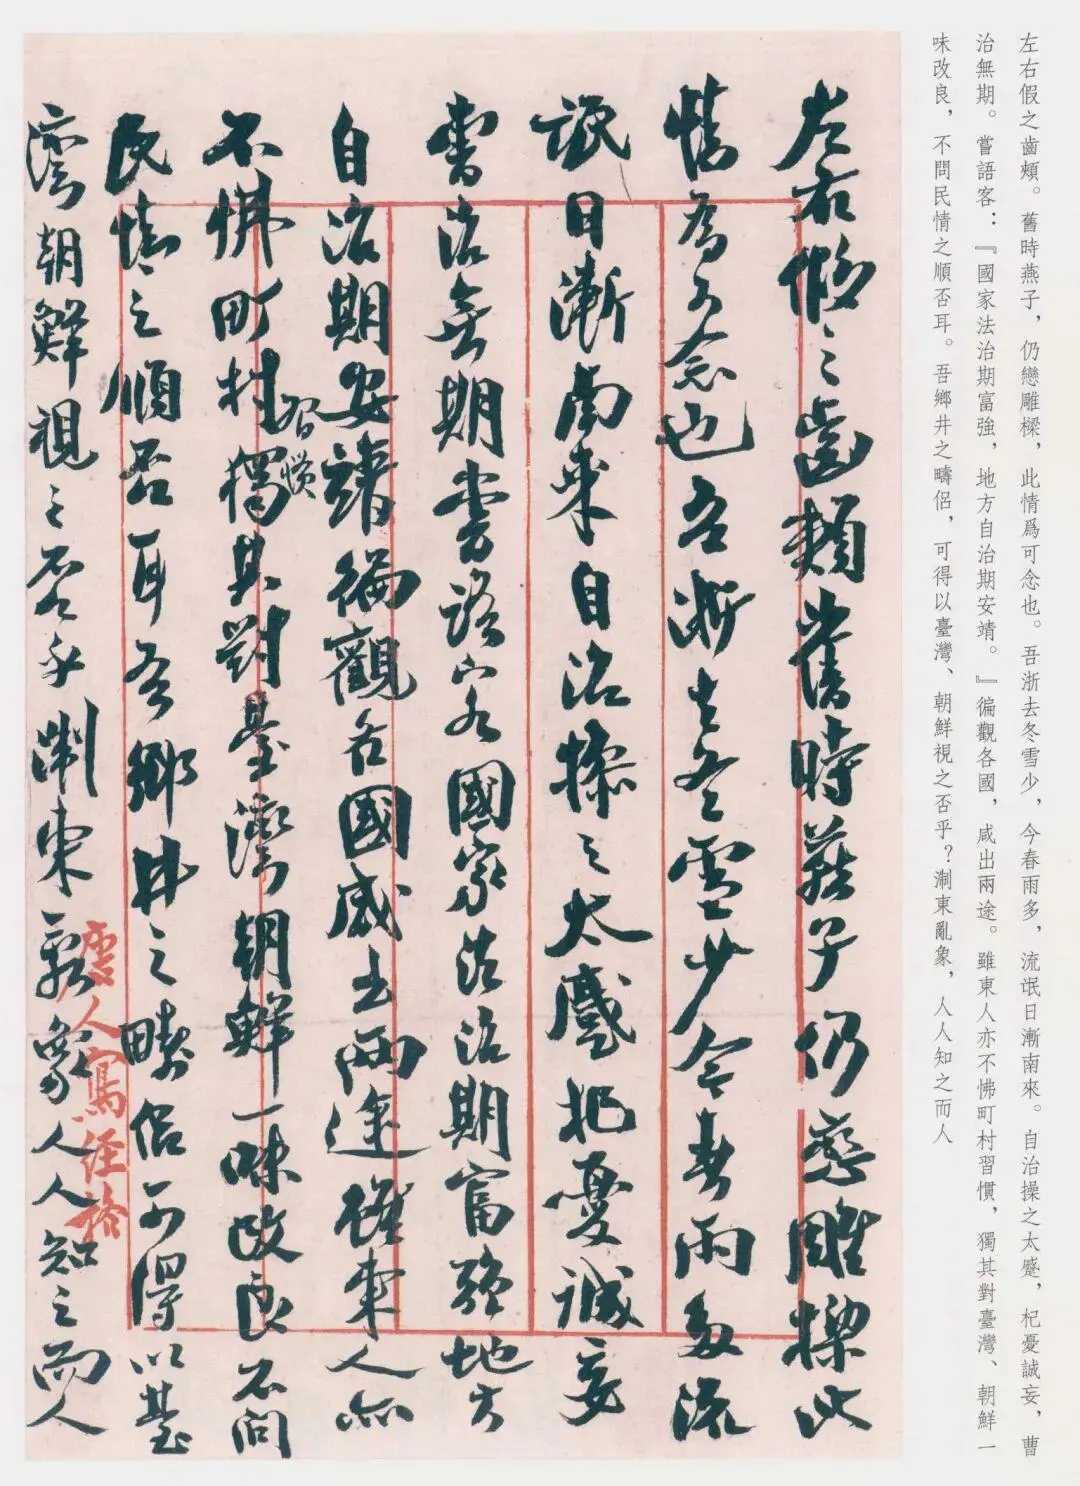 左右假之齒頰。舊時燕子，仍戀雕樑，此情爲可念也。吾浙去冬雪少，今春雨多，流氓日漸南來。自治操之太蹙，杞憂誠妄，曹
治無期。嘗語客：『國家法治期富強，地方自治期安靖。』徧觀各國，咸出兩途。雖東人亦不怫町村習慣，獨其對臺灣、朝鮮一
味改良，不問民情之順否耳。吾鄉井之疇侶，可得以臺灣、朝鮮視之否乎？淛東亂象，人人知之而人
左右假之齒頰舊時燕子仍戀雕樑此
情爲可念也吾浙去冬雪少今春雨多流
氓日漸南來自治操之太蹙杞憂誠妄
曹治無期嘗語客國家法治期富強地方
自治期安靖徧觀各國咸出兩途雖東人亦
不怫町村習慣獨其對臺灣朝鮮一味改良不問
民情之順否耳吾鄉井之疇侶可得以臺
灣朝鮮視之否乎淛東亂象人人知之而人
唐人寫經格